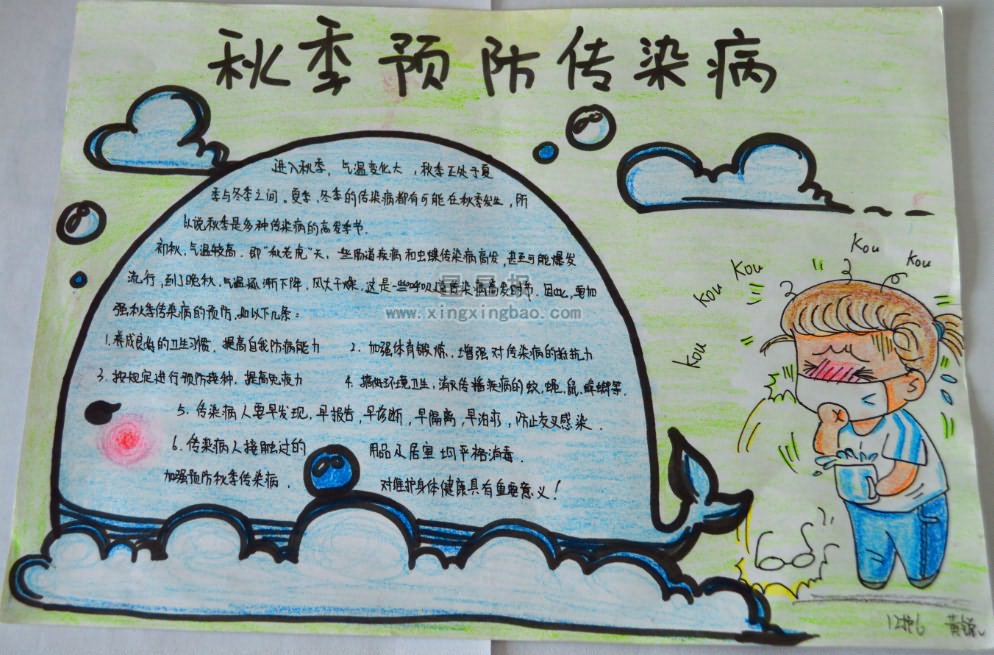 秋季预防传染病
进入秋季，气温变化大，秋季正处于夏
季与冬季之间。夏季、冬季的传染病都有可能在秋季发生，所
以说秋季是多种传染病的高发季节.
初秋，气温较高，即"秋老虎"天，些肠道疾病和虫媒传染病高发，甚至可能爆发
流行，到了晚秋，气温逐渐下降，风大干燥，这是一些呼吸道传染病高发时节．因此，更加
强秋季传染病的预防，如以下几条：
www.xingxingbao.com
1.养成良好的卫生习惯，提高自我防病能力 2. 加强体育锻炼，增强对传染病的抵抗力
3. 按规定进行预防接种，提高免疫力 4. 搞好环境卫生，消灭传播疾病的蚊、蝇、鼠、蟑螂等．
5. 传染病人要早发现，早报告，早诊断，早隔离，早治疗，防止交叉感染．
6. 传染病人接触过的 用品及居室均严格消毒．
加强预防秋季传染病． 对维护身体健康具有重要意义！
Kou
Kou
Kou
Kou
Kou